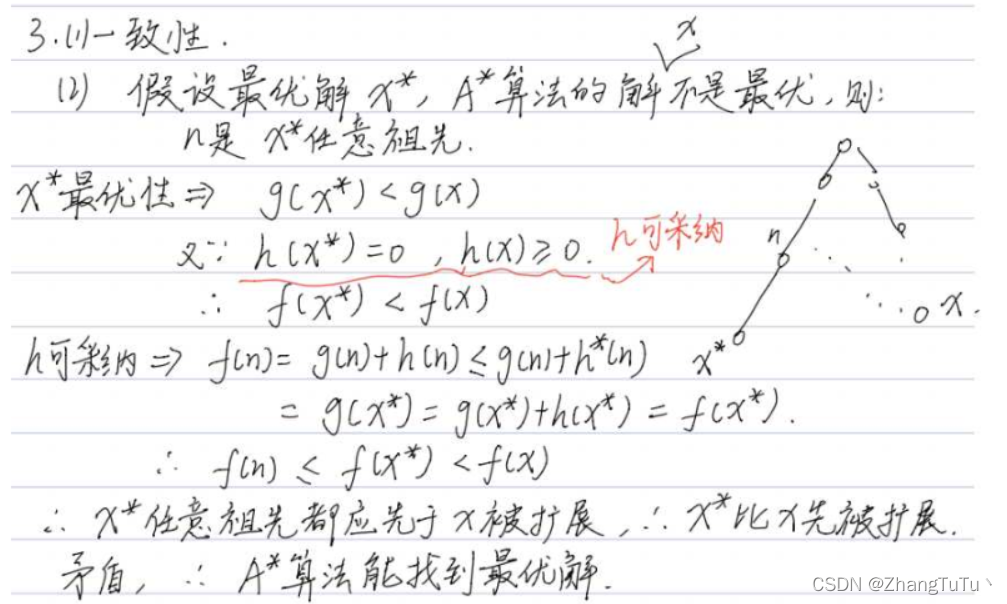 3.(1)一致性.
x
(2) 假设最优解 x*, A*算法的解不是最优, 则:
n是 x*任意祖先.
x*最优性⇒ g(x*)<g(x)
又∵ h(x*)=0 , h(x)≥0. h可采纳
∴ f(x*)<f(x)
n
x.
x*
h可采纳⇒ f(n)= g(n)+h(n)≤g(n)+h*(n)
= g(x*)=g(x*)+h(x*)=f(x*).
∴ f(n) ≤ f(x*) <f(x)
∴ x*任意祖先都应先于x被扩展, ∴ x*比x先被扩展.
矛盾, ∴ A*算法能找到最优解.
CSDN @ZhangTuTu丶